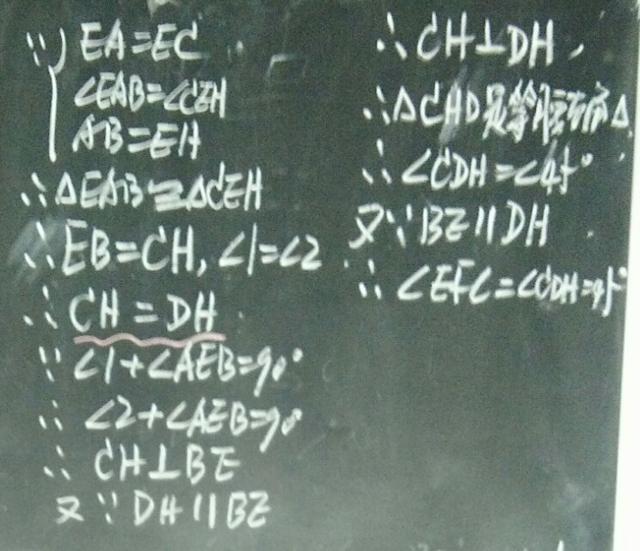 ∵ { EA=EC
∠EAB=∠CEH
AB=EH
∴△EAB≌△CEH
∴EB=CH,∠1=∠2
∴CH=DH
∵∠1+∠AEB=90°
∴∠2+∠AEB=90°
∴CH⊥BE
又∵DH∥BE
∴CH⊥DH,
∴△CHD是等腰直角△
∴∠CDH=∠45°
又∵BE∥DH
∴∠EFC=∠CDH=45°